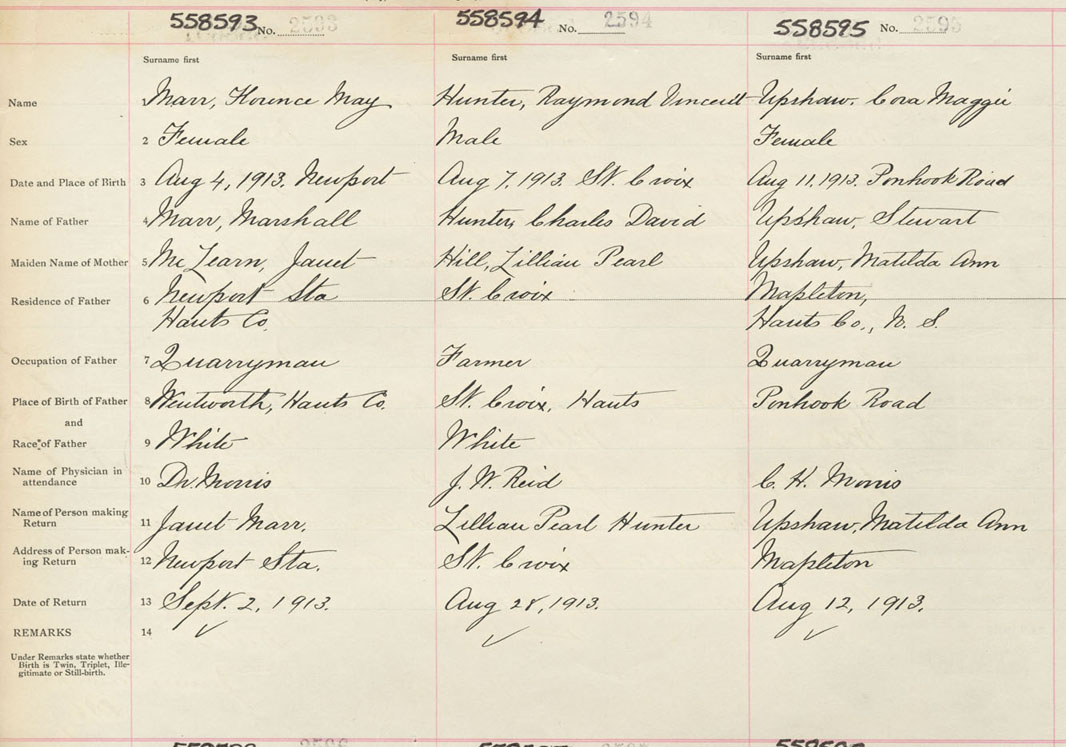 558593 No. 2593 558594 No. 2594 558595 No. 2595
Surname first Surname first Surname first
Name 1 Marr, Florence May Hunter, Raymond Vincent Upshaw. Cora Maggie
Sex 2 Female Male Female
Date and Place of Birth 3 Aug 4, 1913. Newport Aug 7, 1913. St. Croix Aug 11. 1913. Ponhook Road
Name of Father 4 Marr, Marshall Hunter, Charles David Upshaw, Stewart
Maiden Name of Mother 5 McLearn, Janet Hill, Lillian Pearl Upshaw, Matilda Ann
Residence of Father 6 Newport Sta St. Croix Mapleton,
Hants Co. Hants Co., N. S.
Occupation of Father 7 Quarryman Farmer Quarryman
Place of Birth of Father 8 Wentworth, Hants Co. St. Croix, Hants Ponhook Road
and
Race of Father 9 White White
Name of Physician in
attendance 10 Dr. Morris J. W. Reid C. H. Morris
Name of Person making
Return 11 Janet Marr. Lillian Pearl Hunter Upshaw, Matilda Ann
Address of Person mak-
ing Return 12 Newport Sta. St. Croix Mapleton
Date of Return 13 Sept. 2, 1913. Aug 28, 1913. Aug 12, 1913.
REMARKS 14 ✓ ✓ ✓
Under Remarks state whether
Birth is Twin, Triplet, Ille-
gitimate or Still-birth.